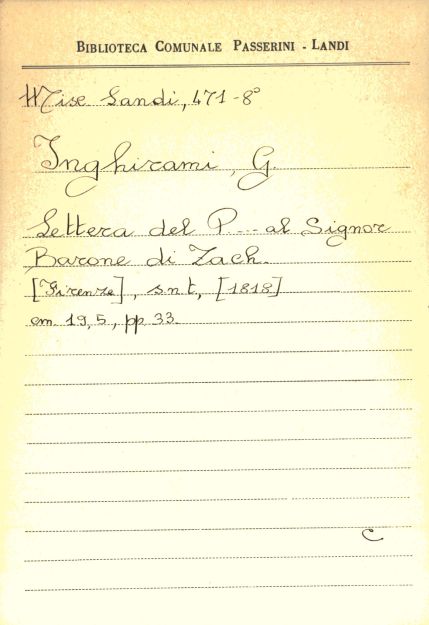 BIBLIOTECA COMUNALE PASSERINI - LANDI
Misc Landi, 471-8°
Inghirami, G.
Lettera del P... al Signor
Barone di Zach.
[Firenze], s.n.t, [1818]
cm 19,5, pp 33
C